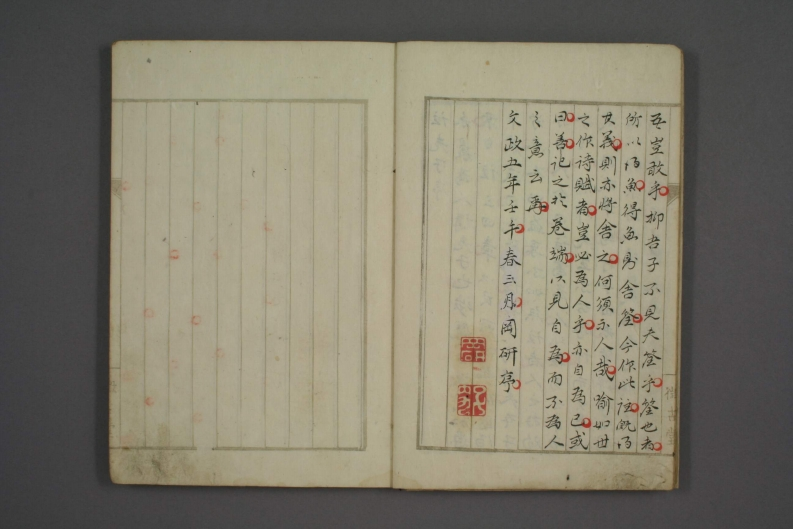 吾豈敢乎抑吾子不見夫筌乎筌也者
所以得魚得魚則舍筌今作此註既得
其義則亦將舍之何須示人哉喻如世
之作詩賦者豈必為人乎亦自為已或
曰善記之於卷端以見自為而不為人
之意云再
文政五年壬午春三月岡研亭